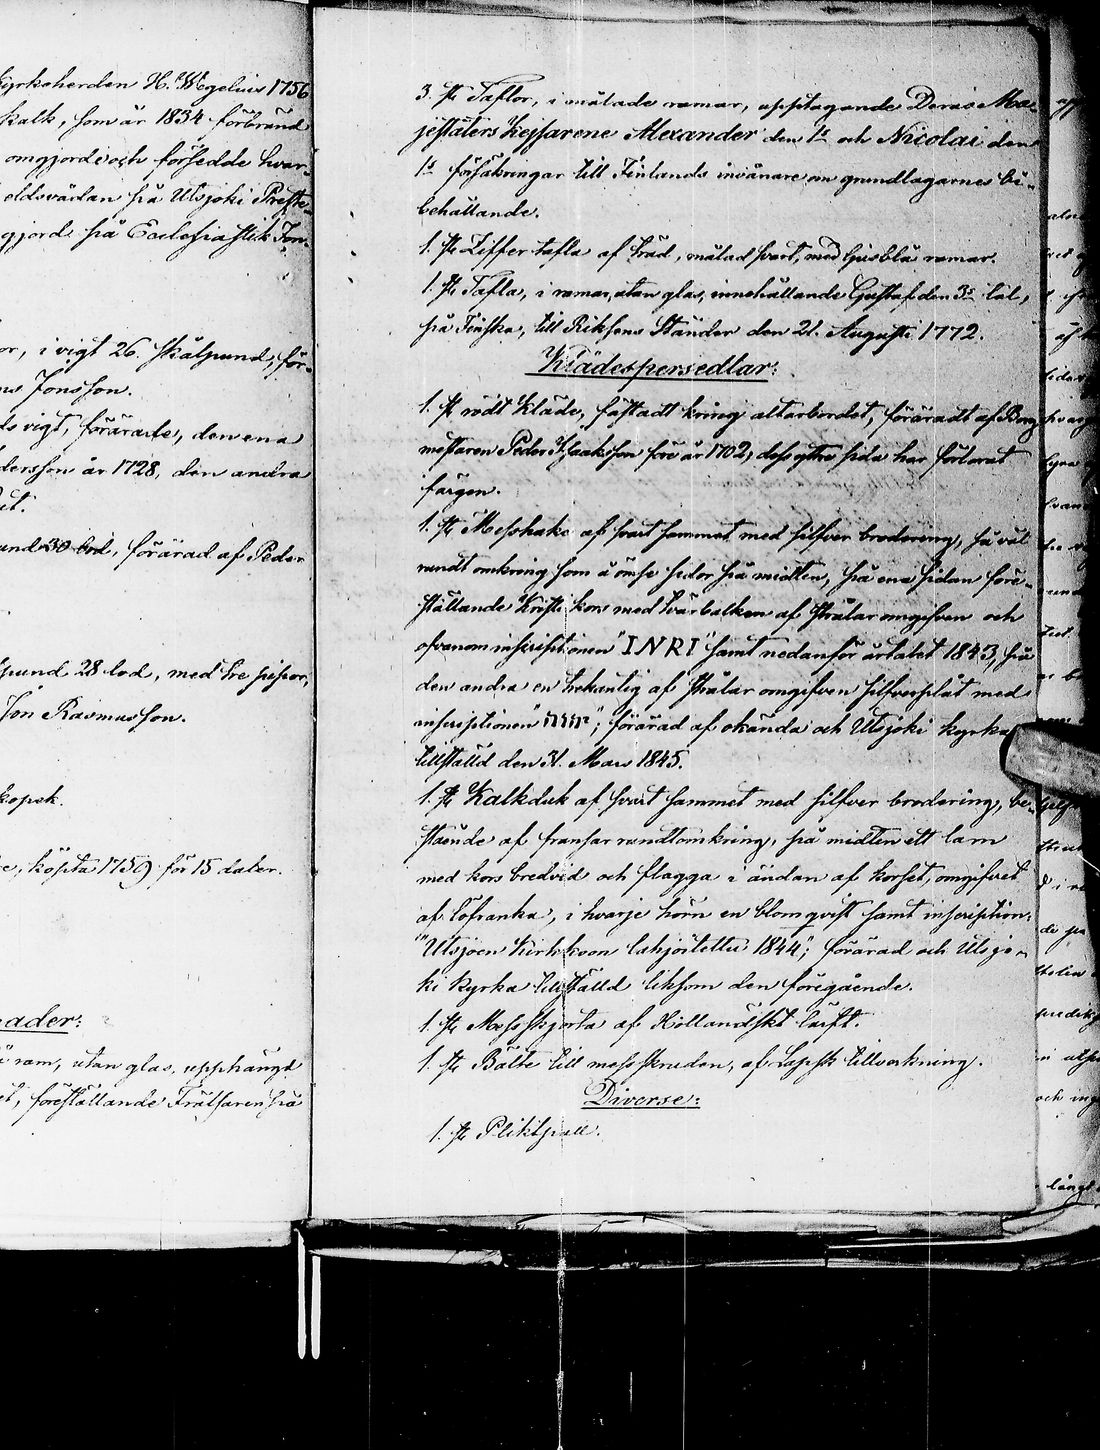 Kyrkoherden H. Wegelius 1756
kalk, som är 1834 förbränd
omgjorde och försedde hvar-
eldsvådan på Utsjoki Preste-
gjord på Ecclesiastik Fon-
or, i vigt 26. skålpund, för-
Jonsson.
vigt, förärade, den ena
dersson år 1728, den andra
30 lod, förärad af Peder
pund 28 lod, med tre pipor,
Jon Rasmusson.
kopek.
köpta 1759 för 15 daler.
ram, utan glas, upphängd
föreställande Frälsaren på
3. st. Taflor, i målade ramar, upptagande Deras Ma-
jestäters Kejsarene Alexander den 1s och Nicolai den
1s försäkringar till Finlands invånare om grundlagarnes bi-
behållande.
1. st. Ziffer tafla af träd, målad svart, med ljusblå ramar.
1. st. Tafla, i ramar, utan glas, innehållande Gustaf den 3s tal,
på Finska, till Riksens Ständer den 21. Augusti 1772.
Klädespersedlar:
1. st. rödt Kläde, fästadt kring altarbordet, föräradt af Borg
mestaren Peder Isaaksson före år 1702, dess yttre sida har förlorat
färgen.
1. st. Messhake af svart sammet med silfver brodering, så väl
rundt omkring som å ömse sidor på midten, på ena sidan före-
ställande Kristi kors med tvärbalken af strålar omgifven och
ofvanom inskriptionen "INRI" samt nedanför årtalet 1843, på
den andra en trekantig af strålar omgifven silfverplåt med
inscriptionen "יהוה"; förärad af okända och Utsjoki kyrka
tillställd den 31. Mars 1845.
1. st. Kalkduk af svart sammet med silfver brodering, be-
stående af fransar rundtomkring, på midten ett lam
med kors bredvid och flagga i ändan af korset, omgifvet
af löfranka, i hvarje hörn en blomqvist samt inscription:
"Utsjoen Kirkkoon lahjoitettu 1844"; förärad och Utsjo-
ki kyrka tillställd liksom den föregående.
1. st. Messskjorta af Holländskt lärft.
1. st. Bälte till messskruden, af Lapsk tillverkning.
Diverse:
1. st. Pliktpall.